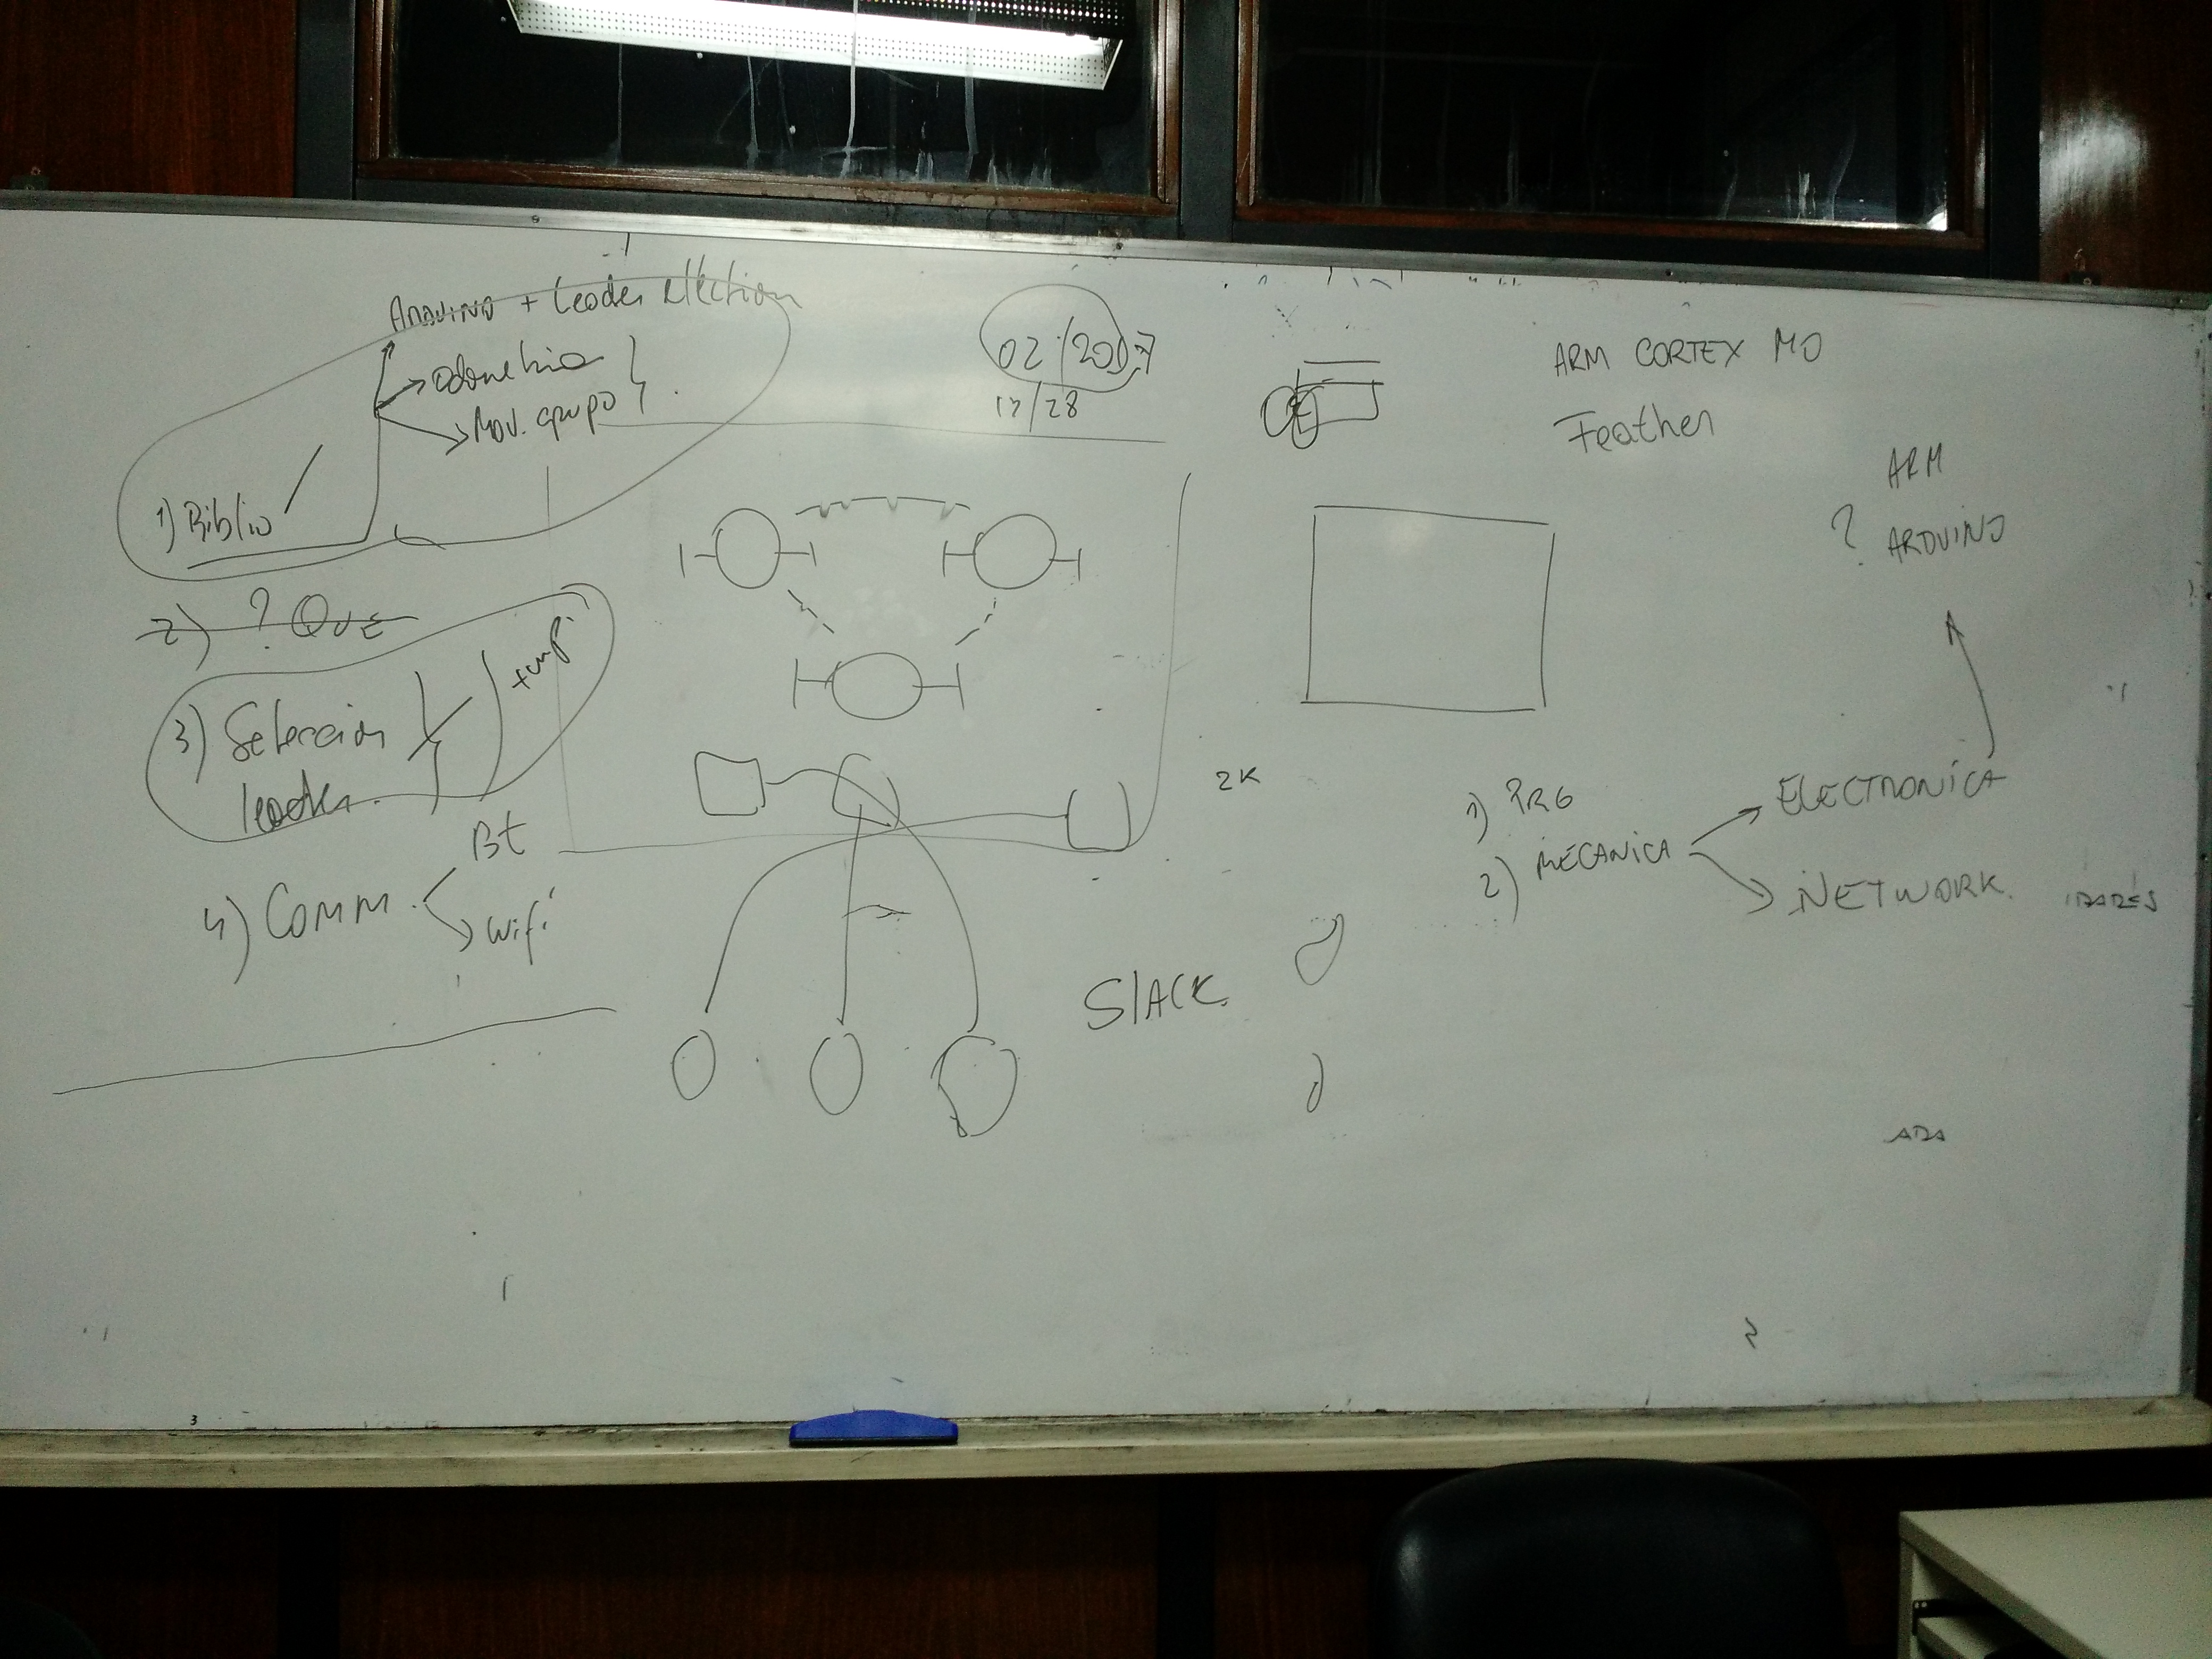 Arduino + Leader Election
odometria
Mov. grupo
1) Biblio
2) ? QUE
3) Seleccion
leader.
4) Comm.
Bt
Wifi
02/2017
12/28
ARM CORTEX M0
Feather
ARM
? ARDUINO
2K
1) PRG
2) MECANICA
ELECTRONICA
NETWORK.
SLACK
ADA